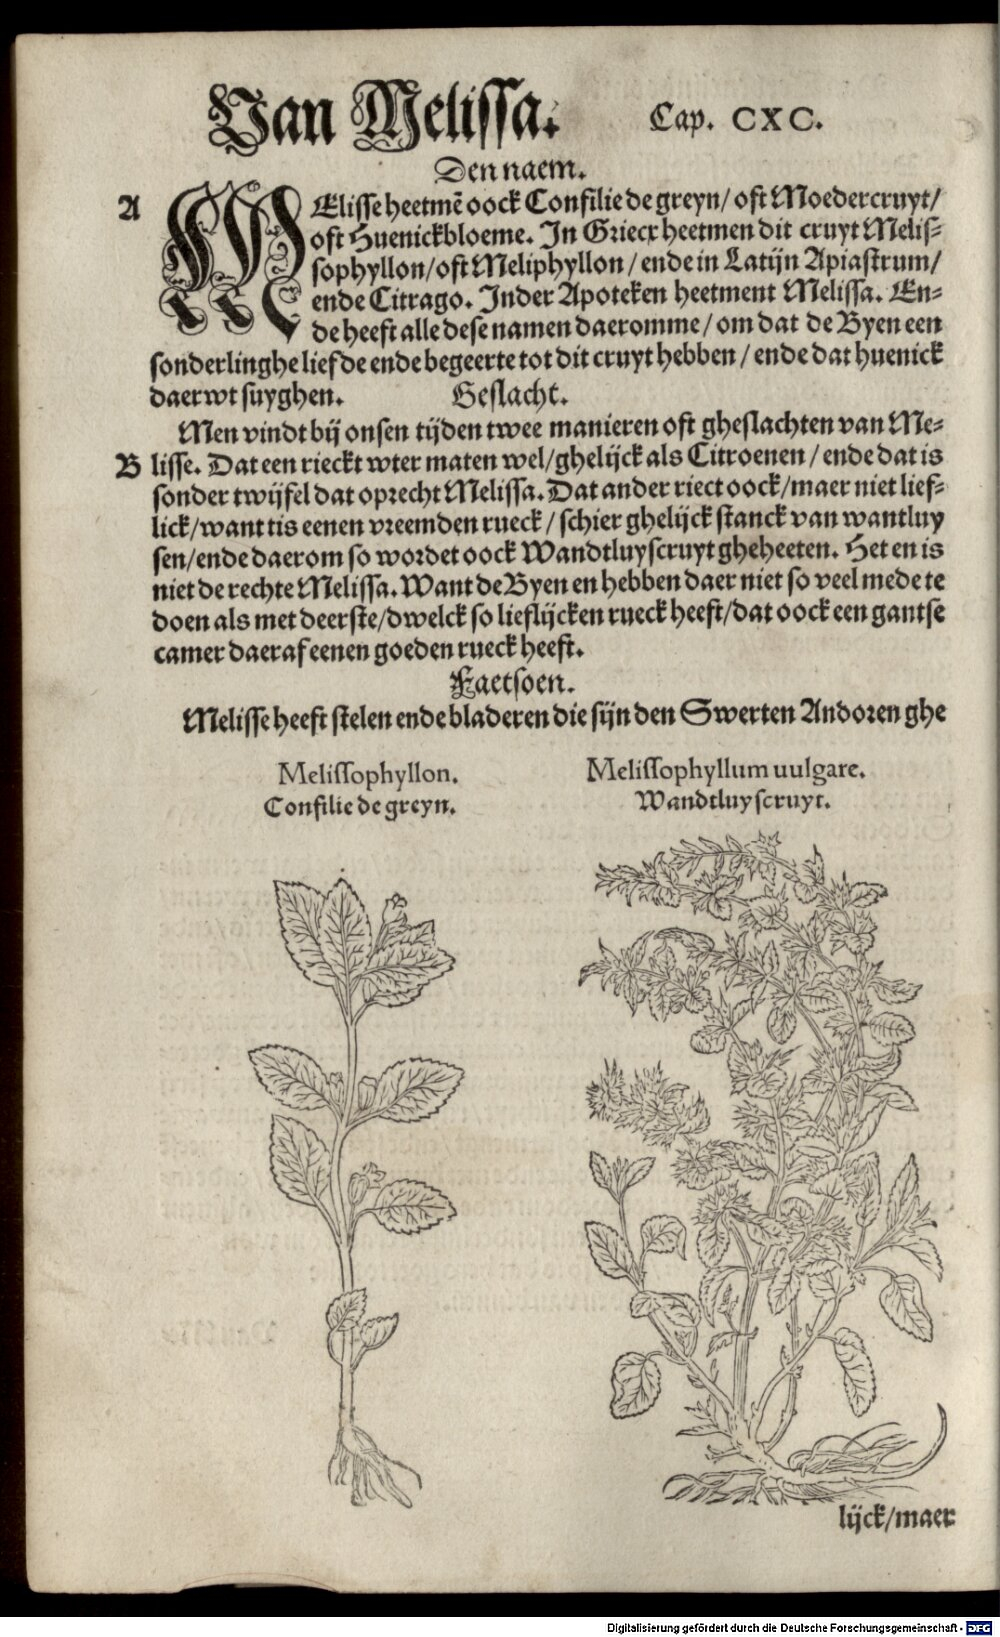 Van Melissa. Cap. CXC.
Den naem.
A MElisse heetmē oock Confilie de greyn/ oft Moedercruyt/
oft Huenickbloeme. In Griecx heetmen dit cruyt Melis-
sophyllon/ oft Meliphyllon/ ende in Latijn Apiastrum/
ende Citrago. Inder Apoteken heetment Melissa. En-
de heeft alle dese namen daeromme/ om dat de Byen een
sonderlinghe liefde ende begeerte tot dit cruyt hebben/ ende dat huenick
daer wt suyghen. Geslacht.
Men vindt bij onsen tijden twee manieren oft gheslachten van Me-
B lisse. Dat een rieckt wter maten wel/ ghelijck als Citroenen/ ende dat is
sonder twijfel dat oprecht Melissa. Dat ander riect oock/ maer niet lief-
lick/ want tis eenen vreemden rueck/ schier ghelijck stanck van wantluy
sen/ ende daerom so wordet oock Wandtluyscruyt gheheeten. Het en is
niet de rechte Melissa. Want de Byen en hebben daer niet so veel mede te
doen als met deerste/ dwelck so lieflijcken rueck heeft/ dat oock een gantse
camer daeraf eenen goeden rueck heeft.
Faetsoen.
Melisse heeft stelen ende bladeren die sijn den Swerten Andoren ghe
Melissophyllon. Melissophyllum uulgare.
Confilie de greyn. Wandtluyscruyt.
lijck/ maer
Digitalisierung gefördert durch die Deutsche Forschungsgemeinschaft - DFG